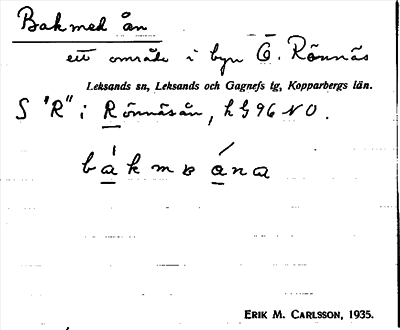 Bakmed ån
ett område i byn Ö. Rönnäs
Leksands sn, Leksands och Gagnefs tg, Kopparbergs län.
S "R" i Rönnäsån, k G 96 NO.
bákmɞ ána
ERIK M. CARLSSON, 1935.